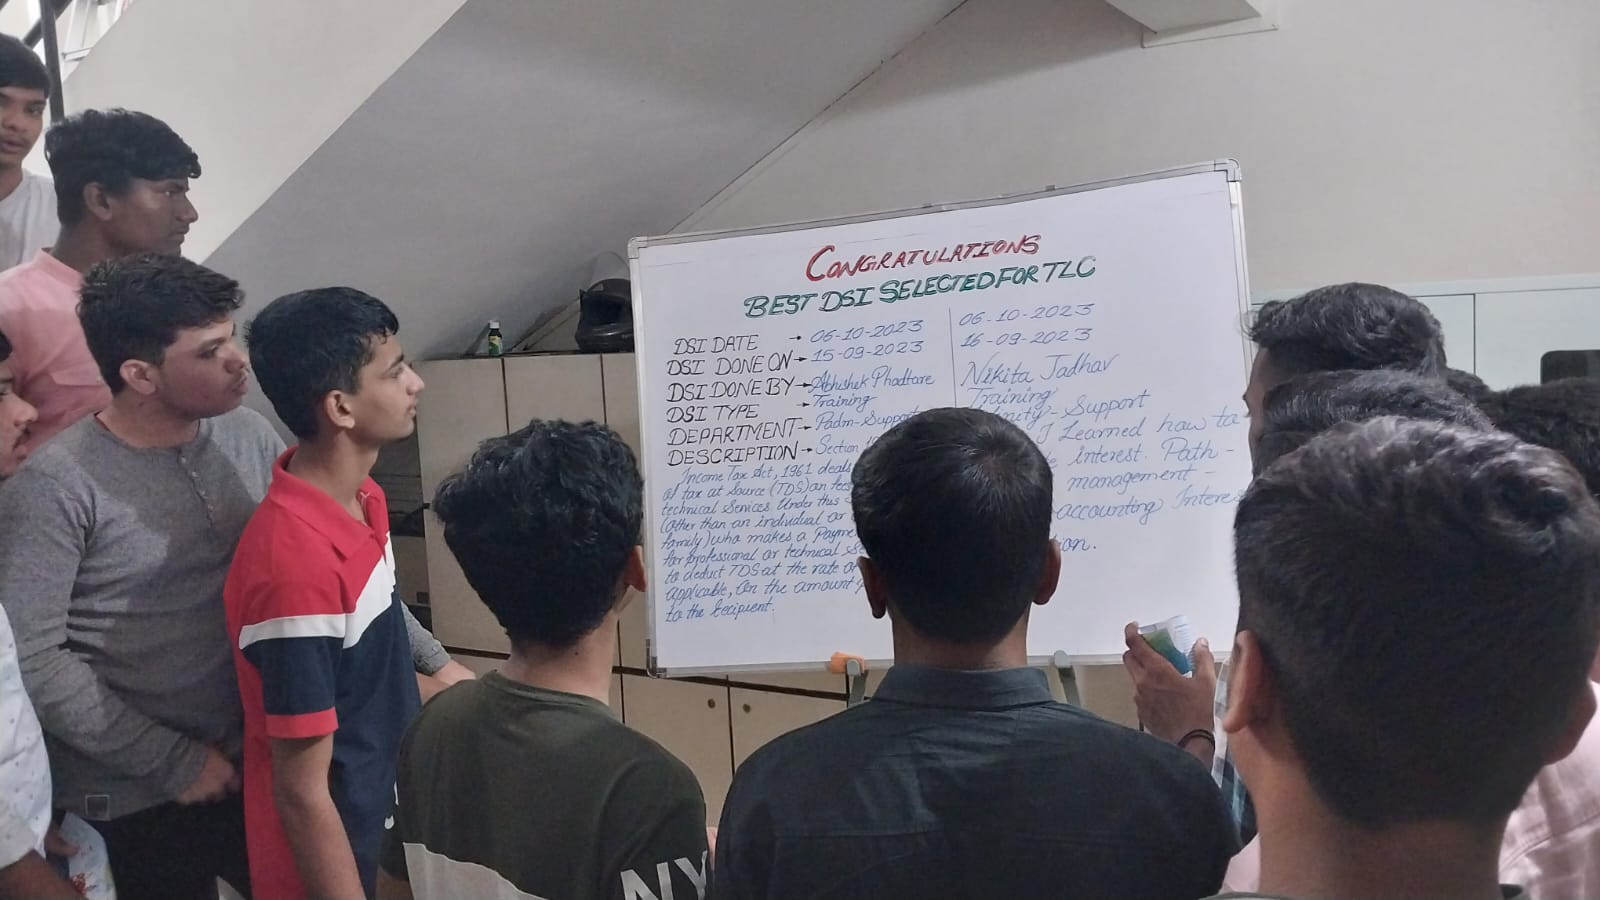 CONGRATULATIONS
BEST DSI SELECTED FOR TLC
DSI DATE → 06-10-2023
DSI DONE ON → 15-09-2023
DSI DONE BY → Abhishek Phadtare
DSI TYPE → Training
DEPARTMENT → Padm-Support
DESCRIPTION → Section
Income Tax Act, 1961 deals
of tax at Source (TDS) on fees
technical Services. Under this
(other than an individual or
family) who makes a Payme
for professional or technical Se
to deduct TDS at the rate
applicable, on the amount
to the recipient.
06-10-2023
16-09-2023
Nikita Jadhav
Training
Support
I Learned how to
interest. Path -
management -
accounting Interes
NY